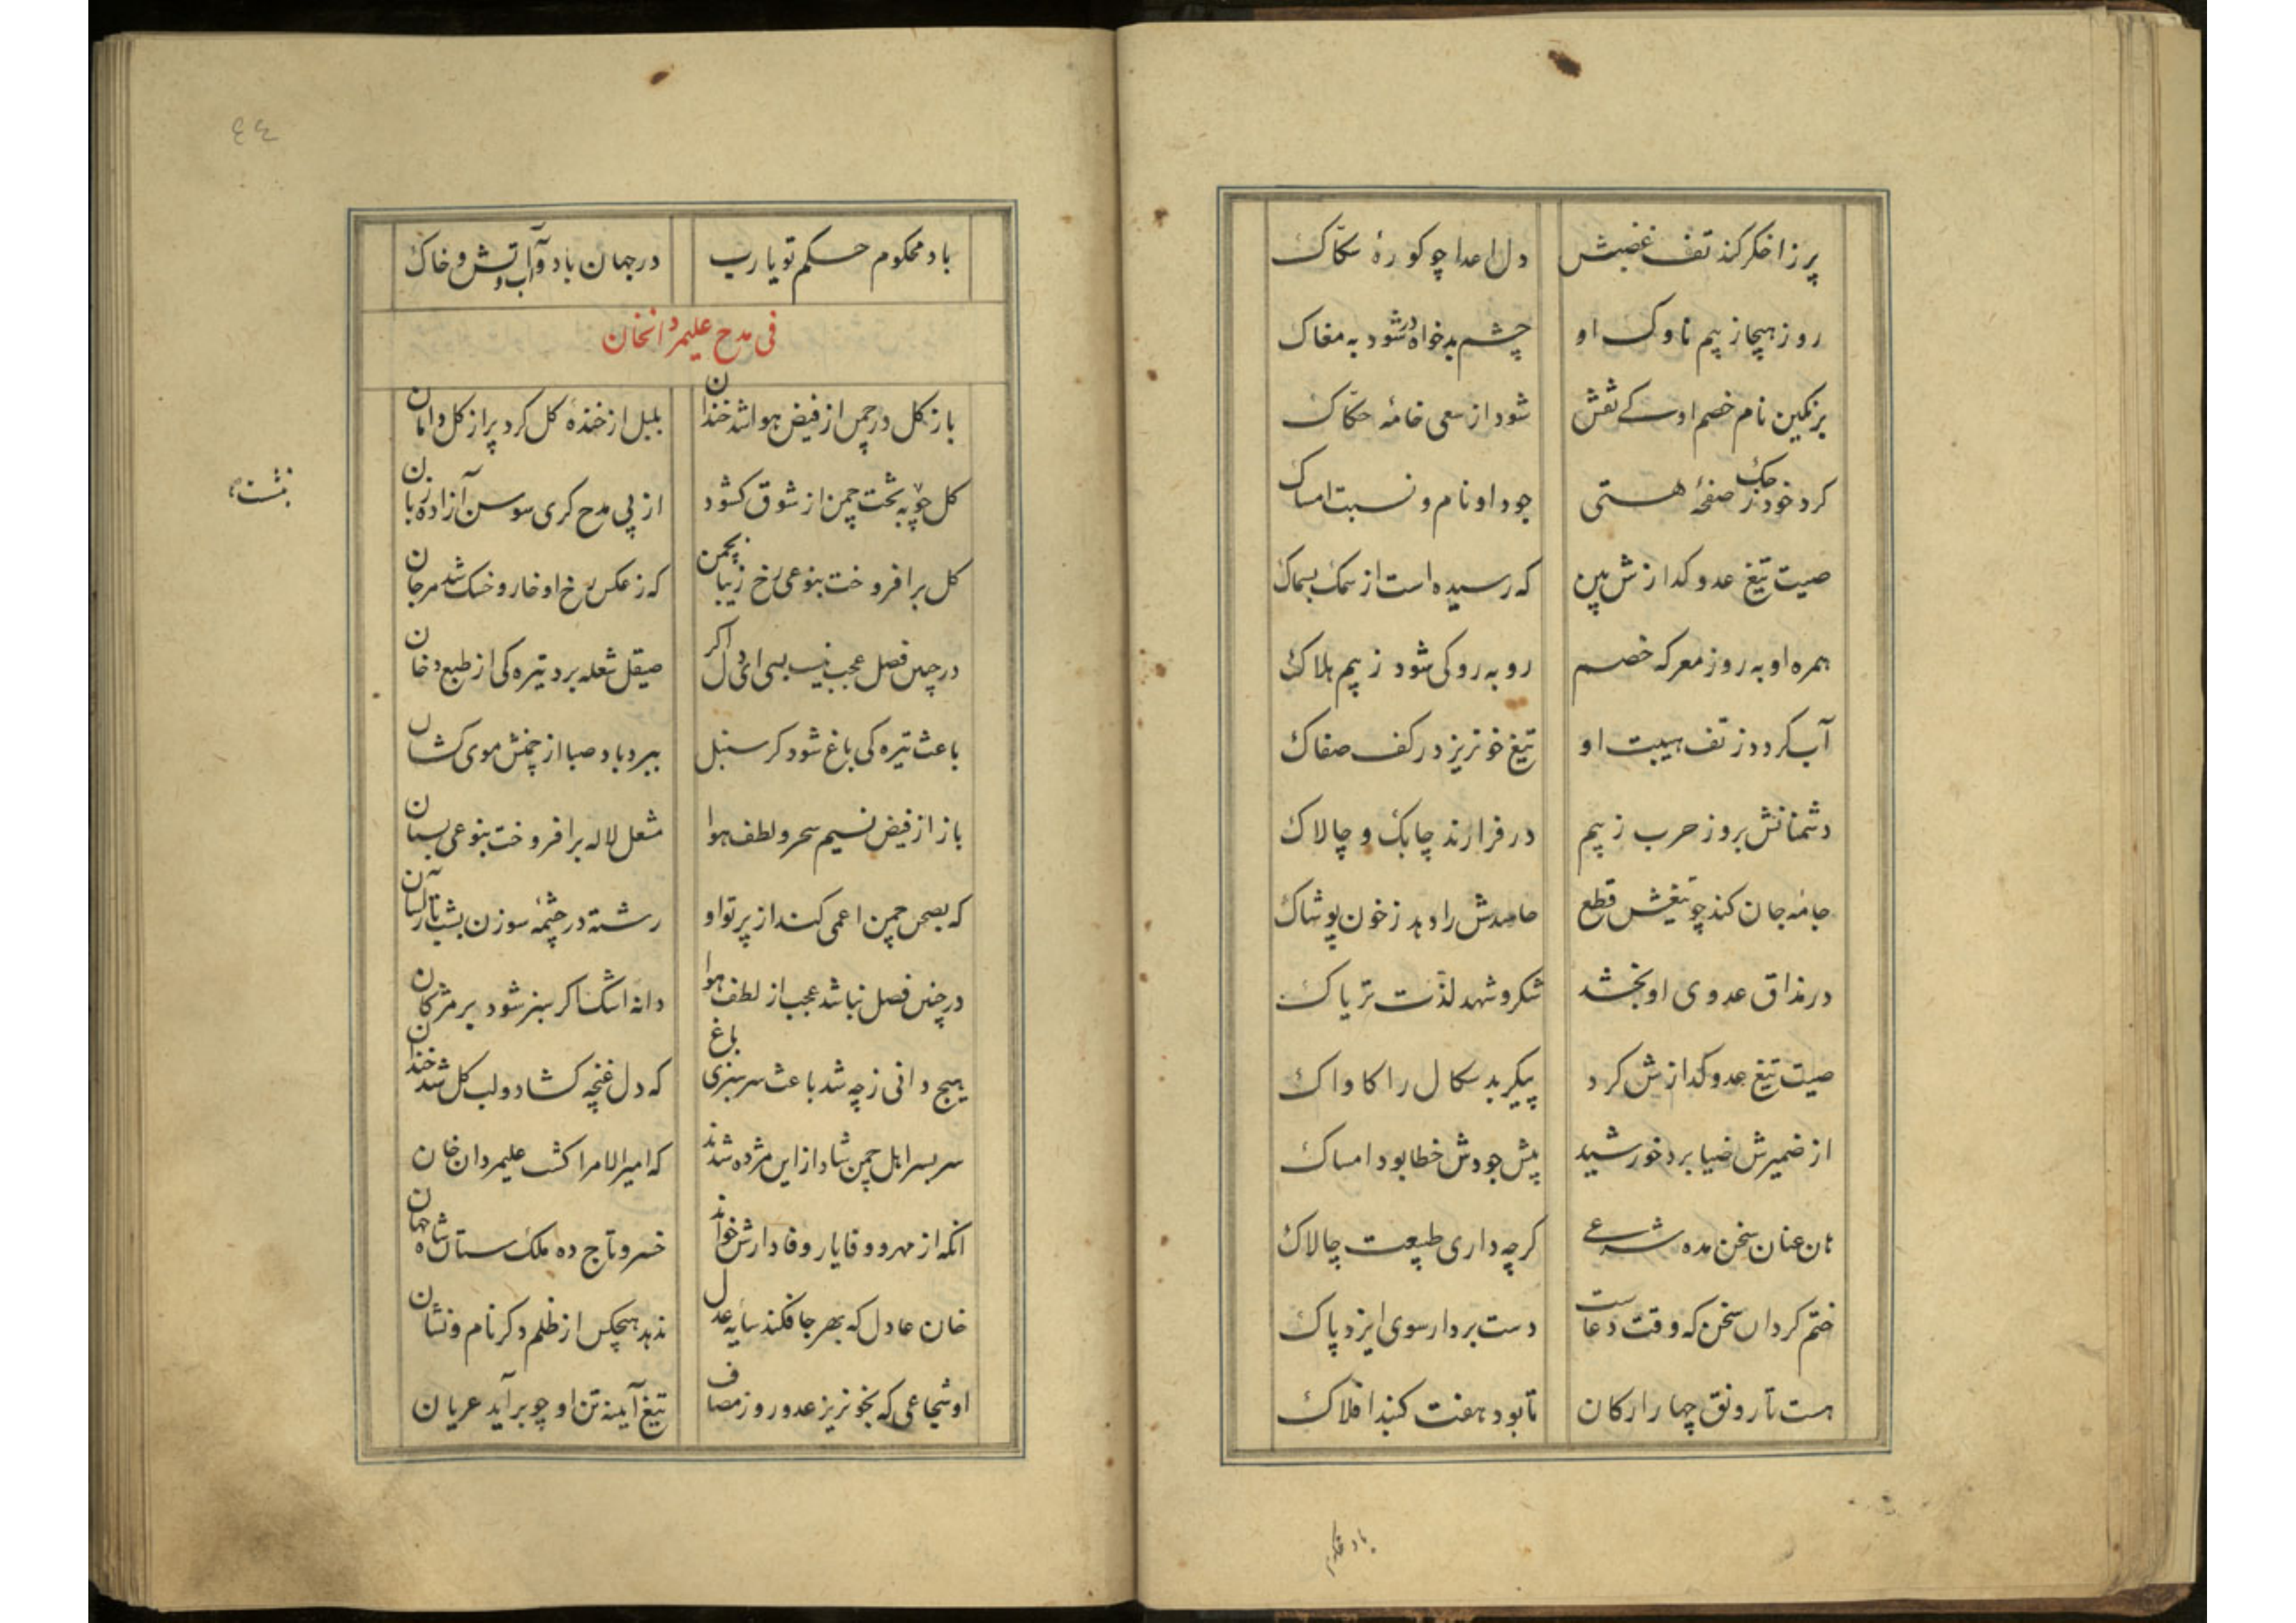 پر ز اخکر کند تف غضبش دل اعدا چو کورهٔ سکاک
روز هیجا ز بیم ناوک او چشم بدخواه در شود به مغاک
بر نکین نام خصم او کے نقش شود از سعی خامهٔ حکاک
کرد خود حک ز صفحهٔ هستی جود او نام و نسبت امساک
صیت تیغ عدو کدازش بین که رسیده است از سمک بسماک
همره او به روز معرکه خصم رو به رو کی شود ز بیم هلاک
آب کردد ز تف هیبت او تیغ خونریز در کف صفاک
دشمنانش بروز حرب ز بیم در فرارند چابک و چالاک
جامه جان کند چو تیغش قطع حاسدش را دهد ز خون پوشاک
در مذاق عدوی او بخشد شکر و شهد لذّت تریاک
صیت تیغ عدو کدازش کرد پیکر بد سکال را کاواک
از ضمیرش ضیا برد خورشید پیش جودش خطا بود امساک
عنان سخن مده کرچه داری طبیعت چالاک
ختم کردان سخن که وقت دعاست دست بردار سوی ایزد پاک
هست تا رونق چهار ارکان تا بود هفت کنبد افلاک
باد محکوم
٤٤
باد محکوم حکم تو یا رب در جهان باد و آب و آتش و خاک
فی مدح علیمردانخان
باز کل در چمن از فیض هوا شد خندان بلبل از خندهٔ کل کرد پر از کل دامان
کل چو به تخت چمن از شوق کشود از پی مدح کری سوسن آزاده زبان
کل برافروخت بنوعی رخ زیبا بچمن که ز عکس رخ او خار و خسک شد مرجان
در چنین فصل عجب نیست بسی ای دل اکر صیقل شعله برد تیره کی از طبع دخان
باعث تیره کی باغ شود کر سنبل ببرد باد صبا از چمنش موی کشان
باز از فیض نسیم سحر و لطف هوا مشعل لاله برافروخت بنوعی بستان
که بصحن چمن اعمی کند از پرتو او رشته در چشمهٔ سوزن بشب تارستان
در چنین فصل نباشد عجب از لطف هوا دانه اشک اکر سبز شود بر مژکان
هیچ دانی ز چه شد باعث سرسبزی باغ که دل غنچه کشاد و لب کل شد خندان
سر بسر اهل چمن شاد از این مژده شدند که امیر الامرا کشت علیمردان خان
آنکه از مهر و وفا یار وفادارش خواند خسرو تاج ده ملک ستان شاه جهان
خان عادل که بهر جا فکند سایه عدل ندهد هیچکس از ظلم دکر نام و نشان
او شجاعی که بخونریز عدو روز مصاف تیغ آینه تن او چو برآید عریان